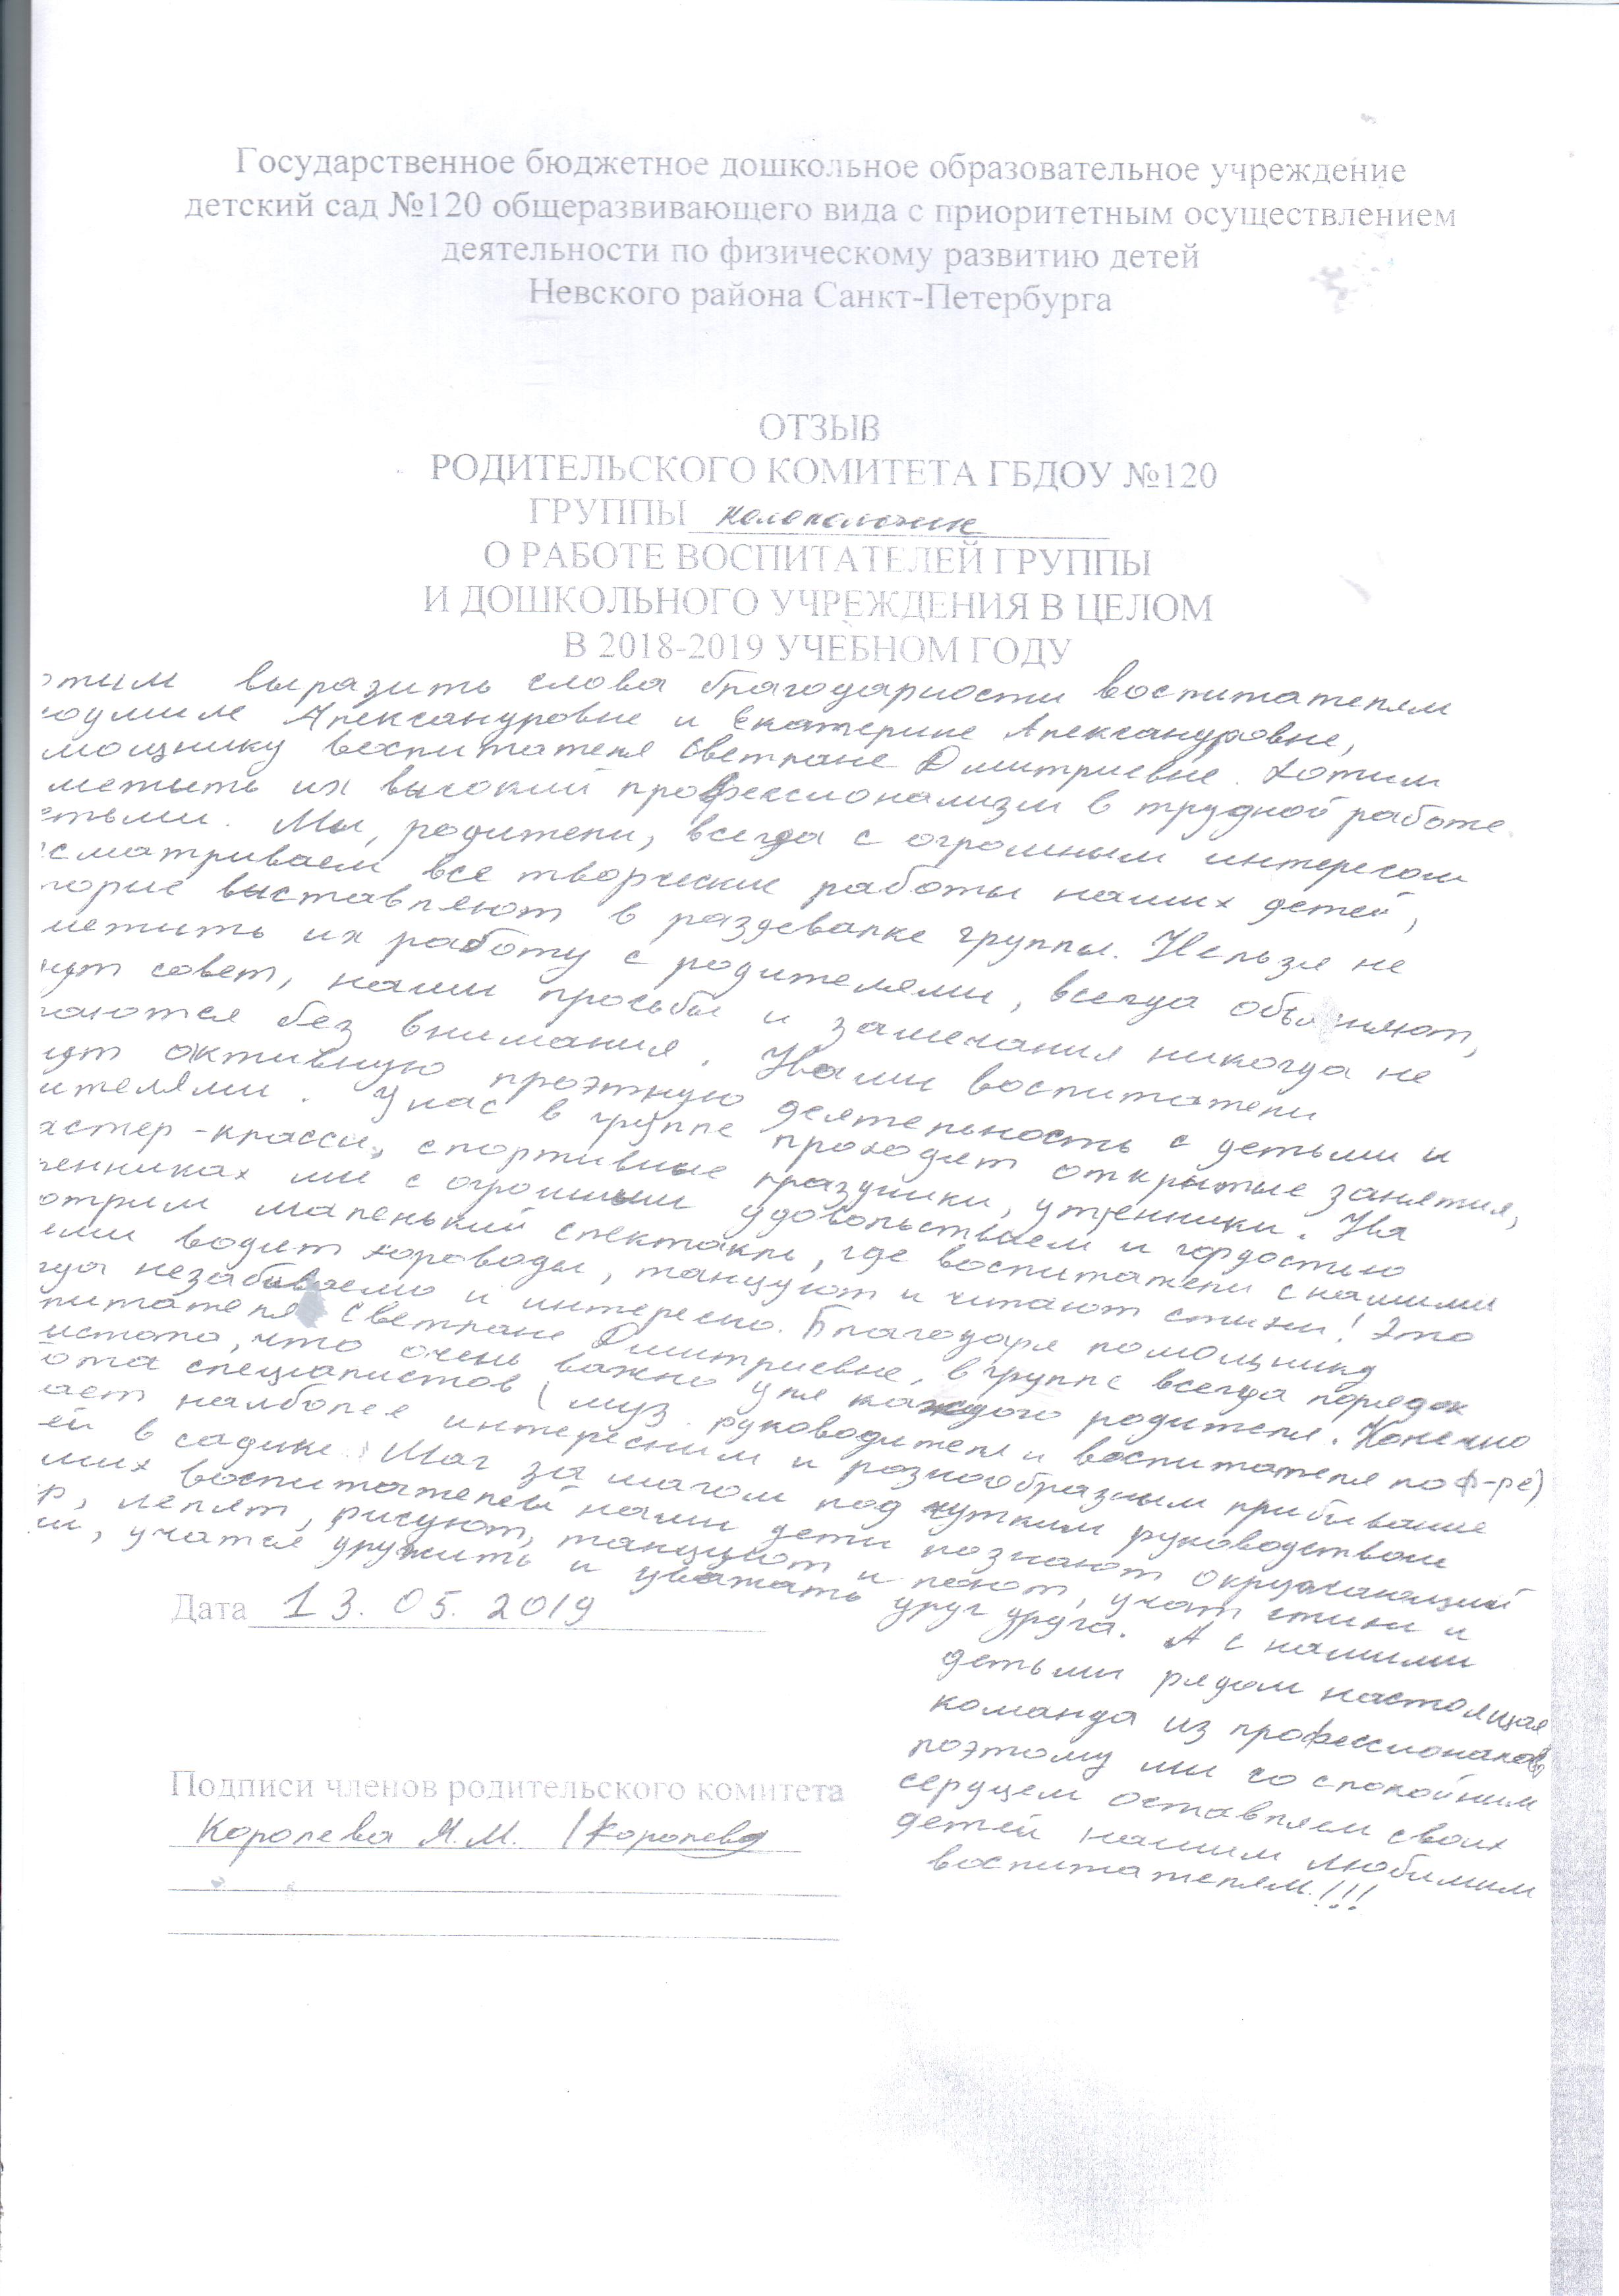 Государственное бюджетное дошкольное образовательное учреждение
детский сад №120 общеразвивающего вида с приоритетным осуществлением
деятельности по физическому развитию детей
Невского района Санкт-Петербурга
ОТЗЫВ
РОДИТЕЛЬСКОГО КОМИТЕТА ГБДОУ №120
ГРУППЫ Колокольчик
О РАБОТЕ ВОСПИТАТЕЛЕЙ ГРУППЫ
И ДОШКОЛЬНОГО УЧРЕЖДЕНИЯ В ЦЕЛОМ
В 2018-2019 УЧЕБНОМ ГОДУ
отим выразить слова благодарности воспитателям
юдмиле Александровне и Екатерине Александровне,
мощнику воспитателя Светлане Дмитриевне. Хотим
метить их высокий профессионализм в трудной работе
етьми. Мы, родители, всегда с огромным интересом
сматриваем все творческие работы наших детей,
торые выставляют в раздевалке группы. Нельзя не
метить их работу с родителями, всегда объясняют,
ют совет, наши просьбы и замечания никогда не
таются без внимания. Наши воспитатели
ут активную проэтную деятельность с детьми и
ителями. У нас в группе проходят открытые занятия,
астер-классы, спортивные праздники, утренники. На
ренниках мы с огромным удовольствием и гордостью
отрим маленький спектакль, где воспитатели с нашими
ями водят хороводы, танцуют и читают стихи! Это
гда незабываемо и интересно. Благодаря помощнику
питателя Светлане Дмитриевне, в группе всегда порядок
истота, что очень важно для каждого родителя. Конечно
ота специалистов (муз. руководителя и воспитателя по ф-ре)
ает наиболее интересным и разнообразным прибывание
ей в садике. Шаг за шагом под чутким руководством
ших воспитателей наши дети познают окружающий
р, лепят, рисуют, танцуют и поют, учат стихи и
и, учатся дружить и уважать друг друга. А с нашими
детьми рядом настоящая
команда из профессионалов
поэтому мы со спокойным
сердцем оставляем своих
детей нашим любимым
воспитателям!!!
Дата 13.05.2019
Подписи членов родительского комитета
Королева Я.М. / Королева